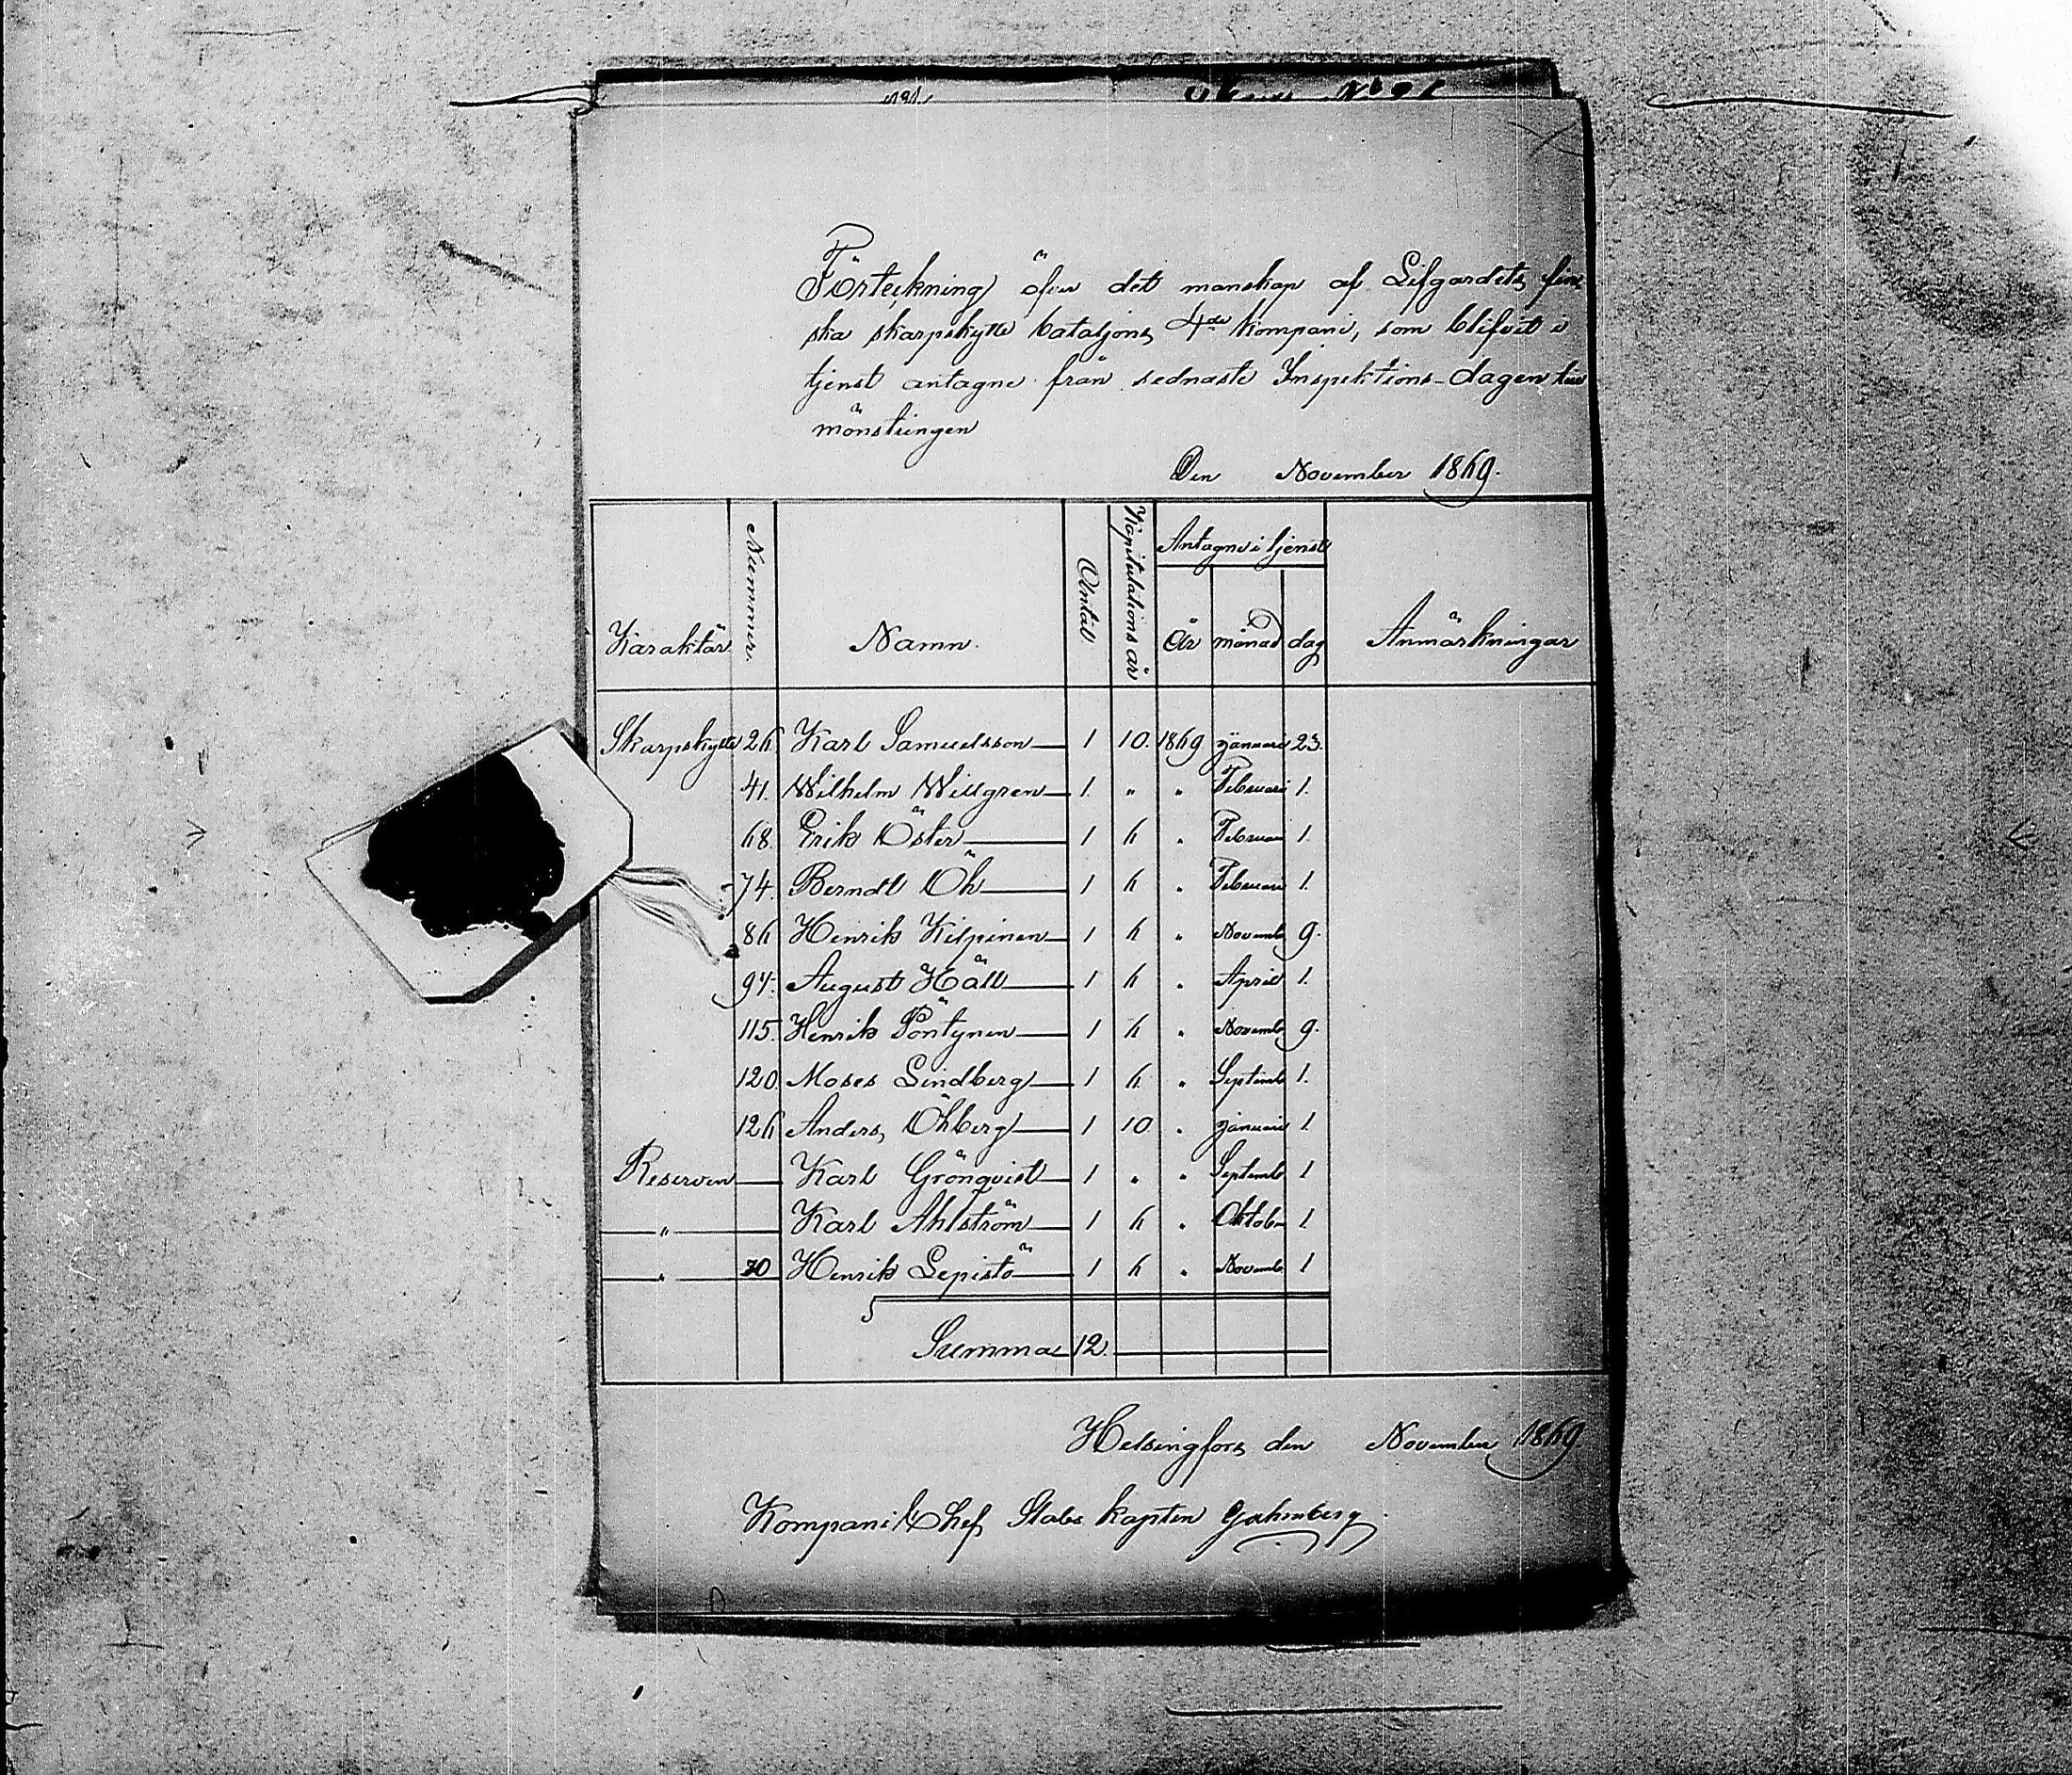 Förteckning öfver det manskap af Lifgardets fin
ska skarpskytte bataljons 4de kompani, som blifvit i
tjenst antagne från sednaste Inspektions-dagen till
mönstringen
Den November 1869.
Karaktär Nummer. Namn. Antal Kapitulations år Antagne i tjenst År månad dag Anmärkningar
Skarpskytte 26 Karl Samuelsson 1 10. 1869 januari 23.
41. Wilhelm Willgren 1. " " Februari 1.
68. Erik Öster 1 6 " Februari 1.
74. Berndt Öh 1 6 " Februari 1.
86 Henrik Kilpinen 1 6 " Novemb 9.
94. August Häll 1 6 " April 1.
115. Henrik Pöntynen 1 6 " Novemb 9.
120. Moses Lindberg 1 6 " Septemb 1.
126 Anders Öhberg 1 10 " januari 1
Reserven Karl Grönqvist 1 " " Septemb 1
" Karl Ahlström 1 6 " Oktober 1
" 70 Henrik Lepistö 1 6 " Novemb 1
Summa 12.
Helsingfors den November 1869
Kompani Chef, Stabs kapten